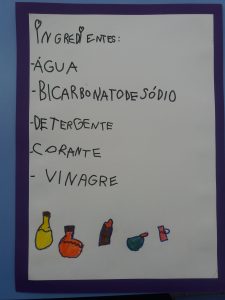 INGREDIENTES:
-ÁGUA
-BICARBONATO DE SÓDIO
-DETERGENTE
-CORANTE
- VINAGRE